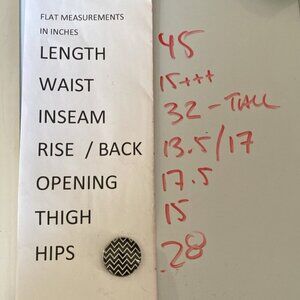 FLAT MEASUREMENTS
IN INCHES
LENGTH 45
WAIST 15+++
INSEAM 32 - TALL
RISE / BACK 13.5/17
OPENING 17.5
THIGH 15
HIPS 28